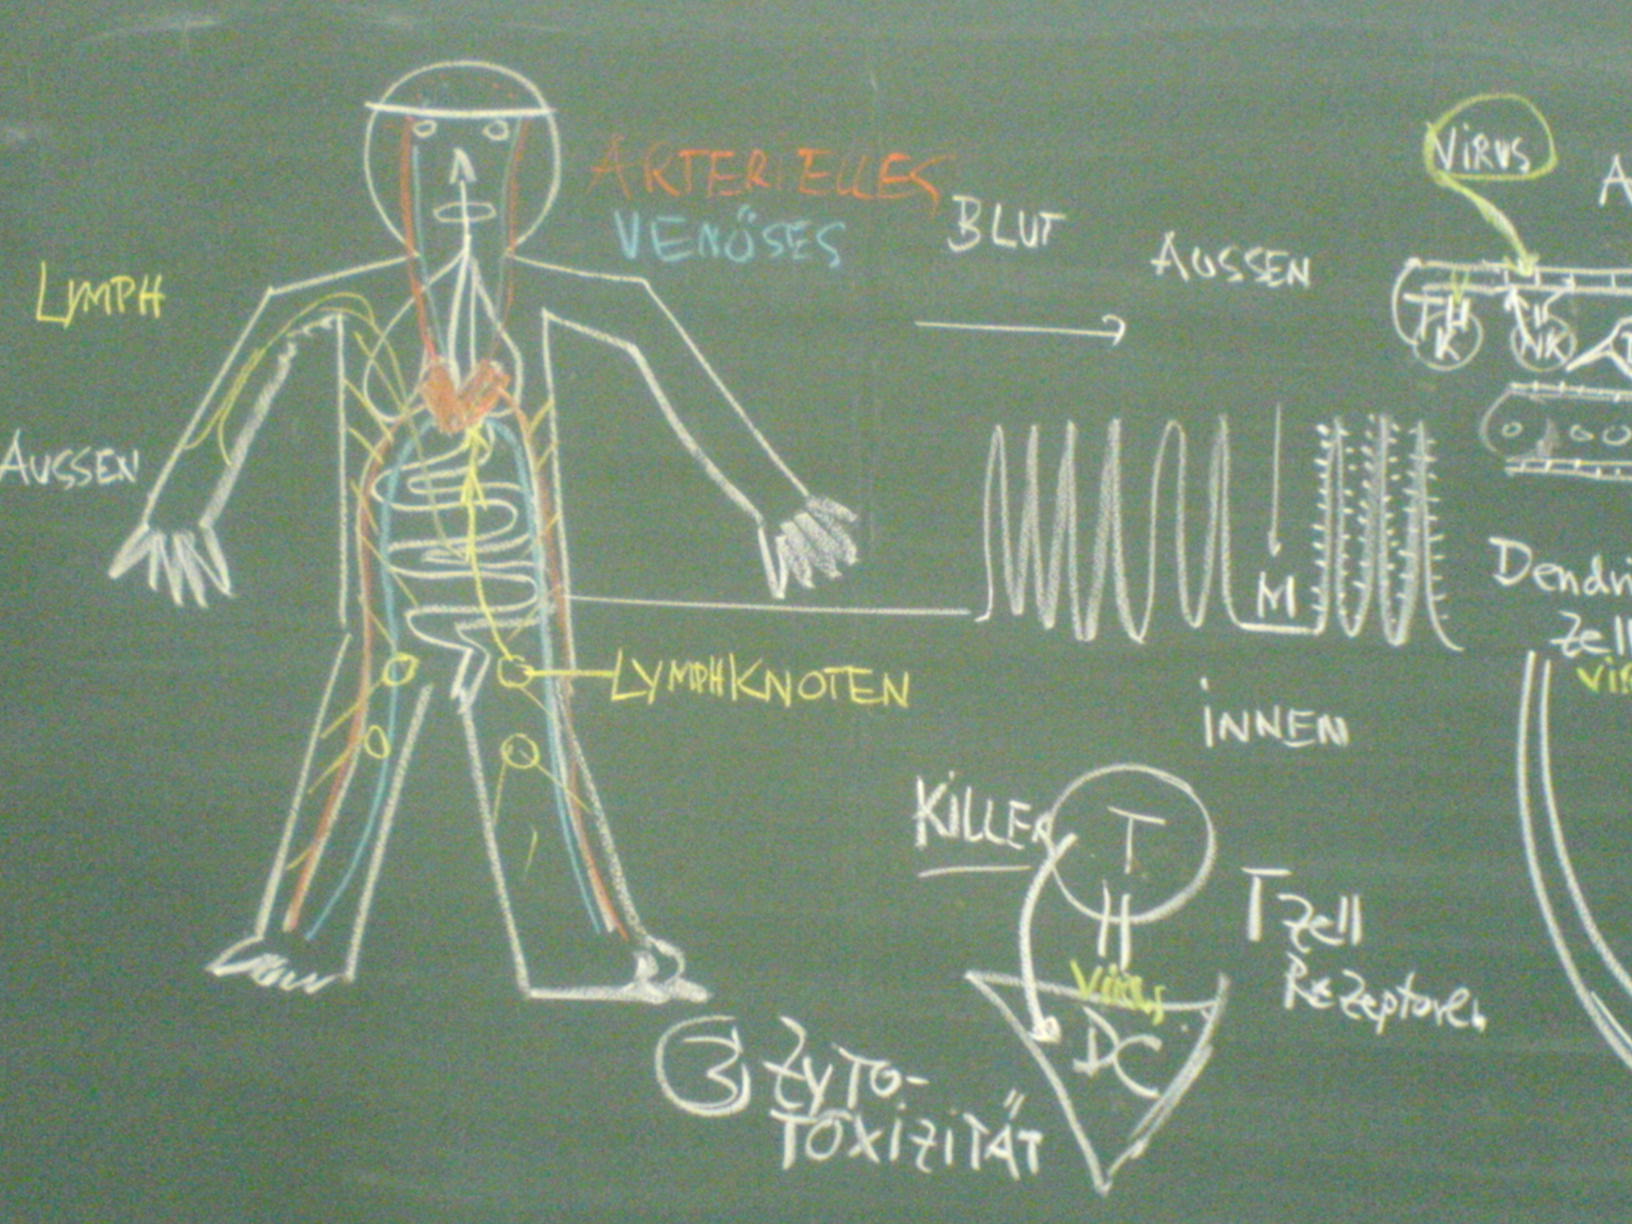 ARTERIELLES
VENÖSES
BLUT
AUSSEN
VIRUS
A
LYMPH
K
NK
AUSSEN
M
Dendri
Zell
Vir
LYMPHKNOTEN
INNEN
KILLER
T
H
T Zell
Rezeptoren
Virus
DC
3 ZYTO-
TOXIZITÄT